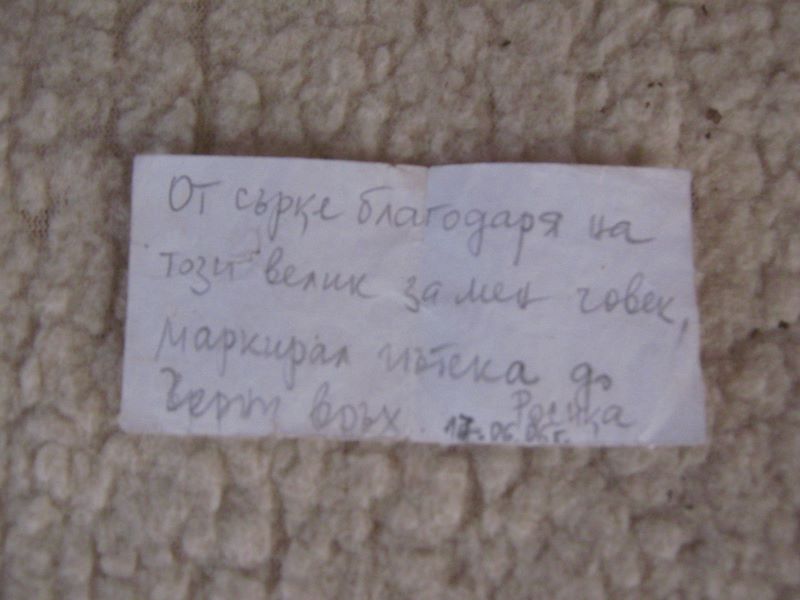 От сърце благодаря на
този велик за мен човек,
маркирал пътека до
Черни връх. Росица
17.06.05 г.